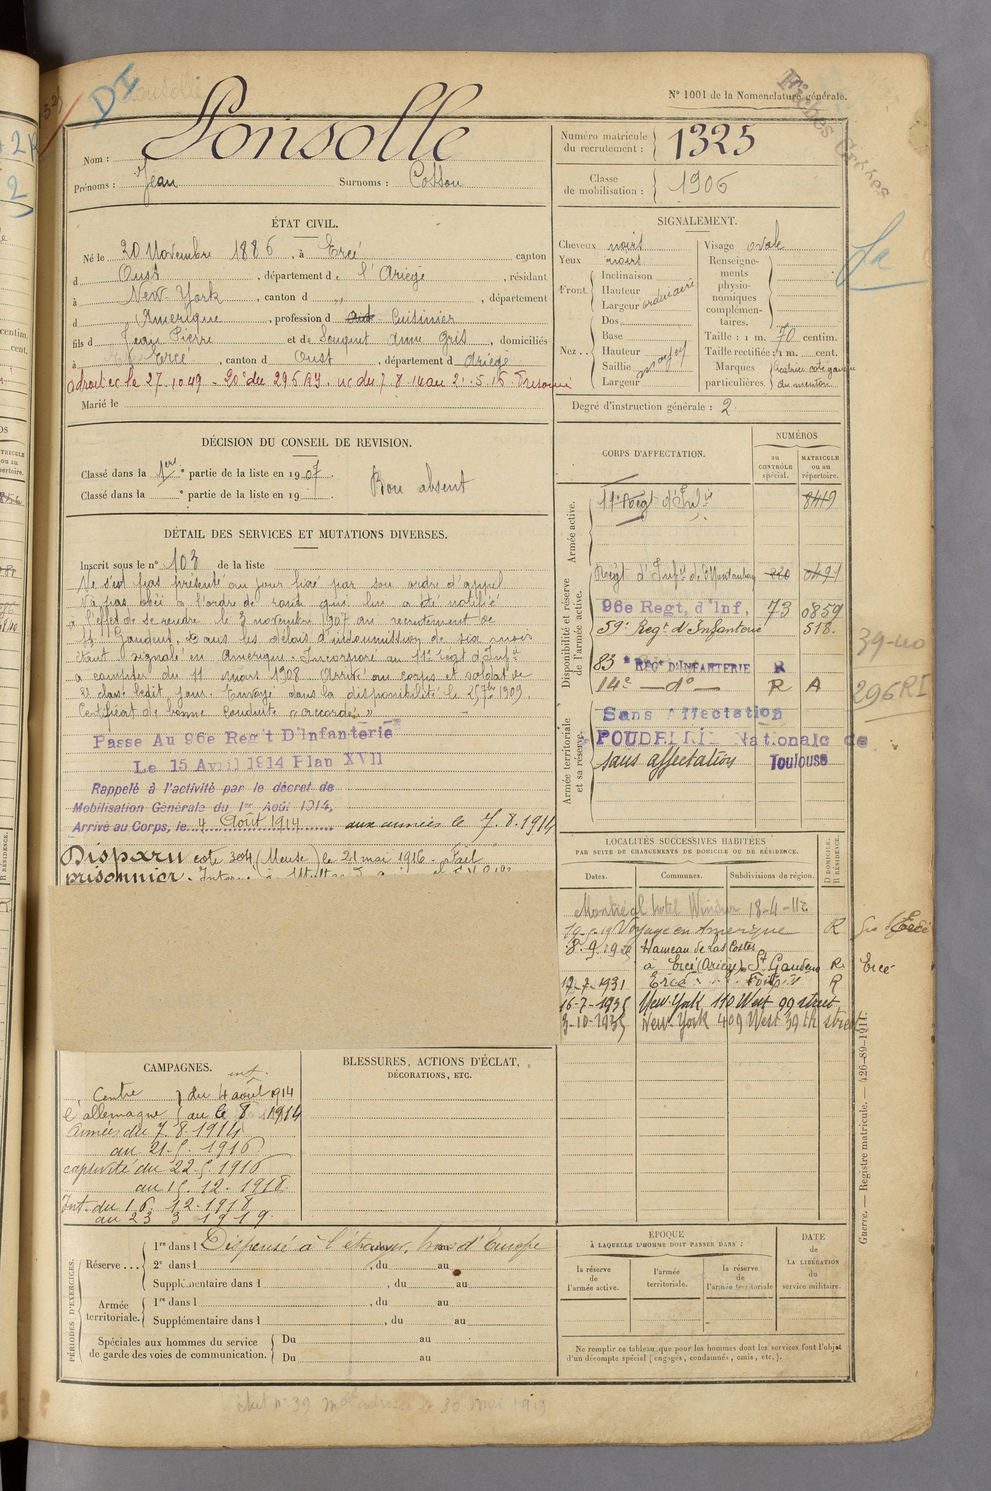 N° 1001 de la Nomenclature générale.
Nom : Sonsolle
Prénoms : Jean Surnoms :
Numéro matricule du recrutement : 1325
Classe de mobilisation : 1906
ÉTAT CIVIL.
Né le 20 Novembre 1886, à Ercé canton
d Oust, département de l'Ariège, résidant
à New-York, canton d „, département
d Amérique, profession d Cuisinier
fils d Jean Pierre et de Souquet Anne Gris, domiciliés
à Ercé, canton d Oust, département d Ariège
Marié le
SIGNALEMENT.
Cheveux noirs
Yeux noirs
Front. Inclinaison
Hauteur
Largeur ordinaire
Nez .. Dos
Base
Hauteur
Saillie moyen
Largeur
Visage ovale
Renseignements physionomiques complémentaires.
Taille : 1 m. 70 centim.
Taille rectifiée : 1 m. cent.
Marques particulières. cicatrice côté gauche du menton
Degré d'instruction générale : 2
DÉCISION DU CONSEIL DE REVISION.
Classé dans la 1ère partie de la liste en 1907
Classé dans la ° partie de la liste en 19
Bon absent
DÉTAIL DES SERVICES ET MUTATIONS DIVERSES.
Inscrit sous le n° 103 de la liste
Ne s'est pas présenté au jour fixé par son ordre d'appel
N'a pas obéi à l'ordre de route qui lui a été notifié
à l'effet de se rendre le 3 novembre 1907 au recrutement de
St Gaudens, dans les délais d'insoumission de six mois
étant signalé en Amérique. Incorporé au 11e regt d'Infie
à compter du 11 mars 1908. Arrivé au corps et soldat de
2e classe ledit jour. Envoyé dans la disponibilité le 25 7bre 1909.
Certificat de bonne conduite "accordé"
Passé Au 96e Reg't D'Infanterie
Le 15 Avril 1914 Plan XVII
Rappelé à l'activité par le décret de
Mobilisation Générale du 1er Août 1914.
Arrivé au Corps, le 4 Août 1914 aux armées le 7.8.1914
Disparu cote 304 (Meuse) le 21 mai 1916. Fait
prisonnier.
CORPS D'AFFECTATION.
NUMÉROS
au CONTRÔLE spécial.
MATRICULE ou au répertoire.
Armée active.
11e Regt d'Infie 8419
Disponibilité et réserve de l'armée active.
Regt d'Infie de Montauban 220 0491
96e Regt, d'Inf, 73 0859
59e Regt d'Infanterie 518.
83 e REGt D'INFANTERIE R
14e — do — R A
Armée territoriale et sa réserve.
Sans Affectation
POUDRERIE Nationale de Toulouse
sans affectation
39-40
296RI
LOCALITÉS SUCCESSIVES HABITÉES
PAR SUITE DE CHANGEMENTS DE DOMICILE OU DE RÉSIDENCE.
Dates. Communes. Subdivisions de région. D DOMICILE. R RÉSIDENCE.
Montréal hotel Windsor 18-4-11
Voyage en Amérique R
8.9.1920 Hameau de Las Costes
à Ercé (Ariège) St Gaudens R Ercé
17-7-1931 Ercé Foix R
16-7-1935 New-York 110 West 99 street
3-10-1935 New-York 409 West 39 th street
CAMPAGNES.
Contre l'allemagne du 4 août 1914
Armées du 7.8.1914
au 21.5.1916
captivité du 22.5.1916
au 15.12.1918
Int. du 16 12.1918
au 23 3 1919.
BLESSURES, ACTIONS D'ÉCLAT,
DÉCORATIONS, ETC.
PÉRIODES D'EXERCICES.
Réserve ... 1re dans l Dispensé à l'étranger, hors d'Europe
2e dans l , du au
Supplémentaire dans l , du au
Armée territoriale. 1re dans l , du au
Supplémentaire dans l , du au
Spéciales aux hommes du service de garde des voies de communication. Du au
Du au
ÉPOQUE
À LAQUELLE L'HOMME DOIT PASSER DANS :
la réserve de l'armée active.
l'armée territoriale.
la réserve de l'armée territoriale
DATE de LA LIBÉRATION du service militaire.
Ne remplir ce tableau que pour les hommes dont les services font l'objet
d'un décompte spécial (engagés, condamnés, omis, etc.).
Guerre. — Registre matricule. — 426-89-1911.